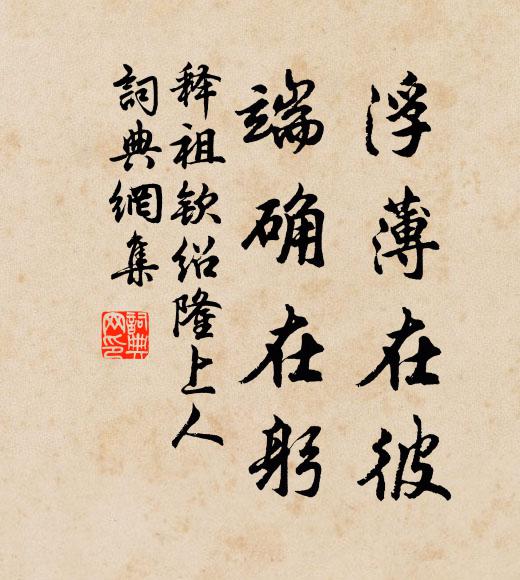 浮薄在彼
端确在躬
释祖钦绍隆上人
詞典網集
詞典網印